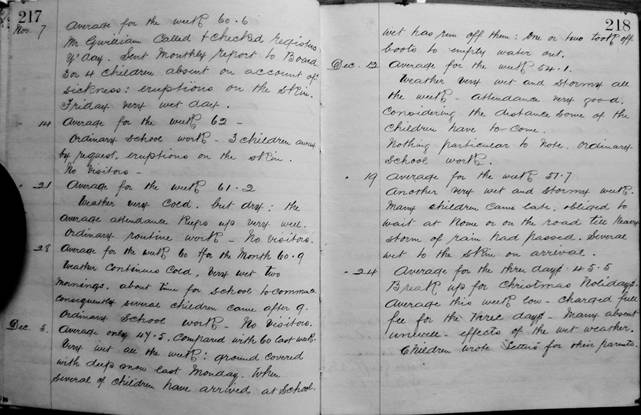 217
Nov. 7 Average for the week 60.6
Mr Gwilliam Called & checked registers
Y'day. Sent Monthly report to Board
3 or 4 children absent on account of
sickness: eruptions on the skin.
Friday very wet day.
14 Average for the week 62 -
Ordinary School work - 3 children away
by request, eruptions on the skin.
No Visitors -
21 Average for the week 61.2
Weather very Cold. but dry: the
average attendance keeps up very well.
Ordinary routine work - No Visitors.
28 Average for the week 60 & for the Month 60.9
Weather continues Cold. Very wet two
mornings. about time for School to commence
consequently several children came after 9.
Ordinary School work - No Visitors.
Dec. 5. Average only 47.5. Compared with 60 last week.
Very wet all the week: ground covered
with deep snow last Monday. When
several of children have arrived at School.
218
wet has run off them: One or two took off
boots to empty water out.
Dec. 12 Average for the week 54.1.
Weather very wet and Stormy all
the week - attendance very good.
Considering the distance some of the
children have to come.
Nothing particular to Note. Ordinary
School work.
19 Average for the week 57.7
Another very wet and stormy week.
Many children came late, obliged to
wait at home or on the road till heavy
storm of rain had passed. Several
wet to the skin on arrival.
24 Average for the three days 45.5
Break up for Christmas Holidays.
Average this week low - Charged full
fee for the three days - Many absent
unwell - effects of the wet weather.
Children wrote letters for their parents.